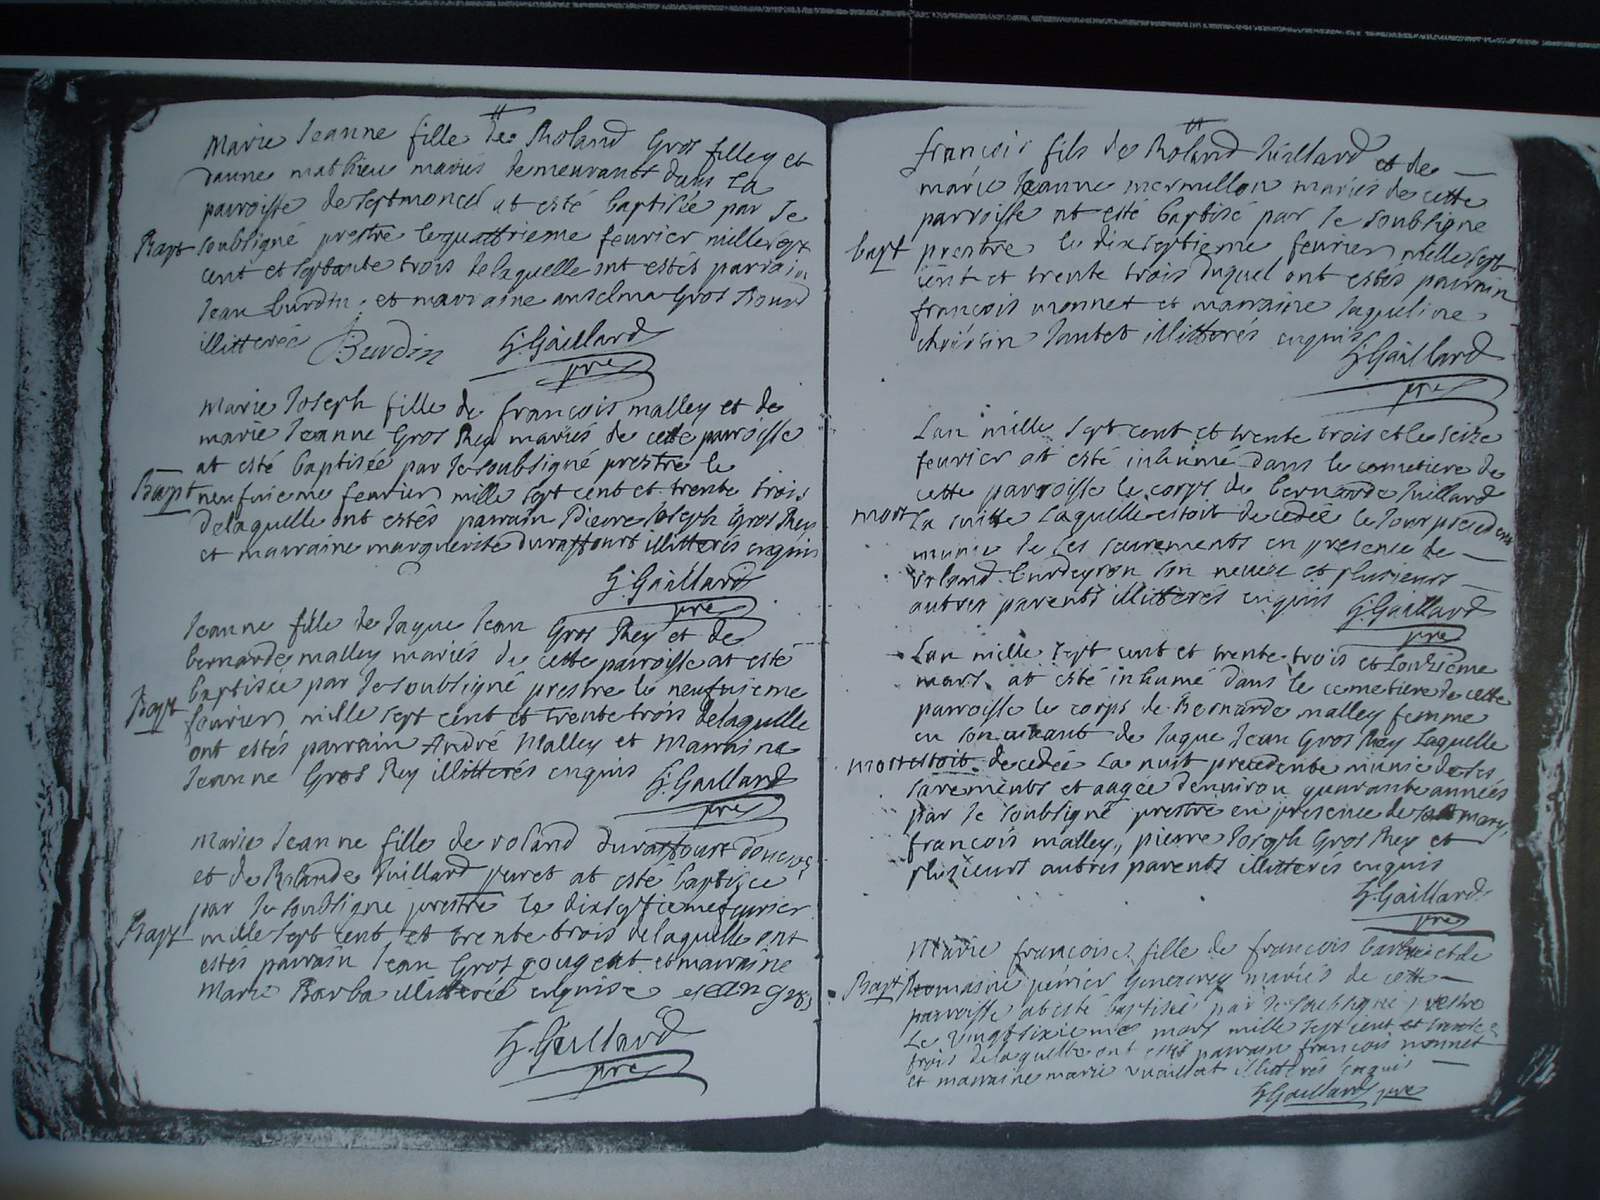 Marie Jeanne fille de Roland Gros filley et
mathieu mariés demeurant dans la
parroisse de Septmoncel at esté baptisée par Je
Bapt soubsigné prestre le quattrieme feurier mille sept
cent et trois de laquelle ont estés parrain
Jean burdin et marraine anselma Gros
illitterée Burdin G. Gaillard
pre
Marie Joseph fille de francois malley et de
marie Jeanne Gros Rey mariés de cette parroisse
at esté baptisée par Je soubsigné prestre le
Bapt neufuieme feurier mille sept cent et trente trois
delaquelle ont estés parrain Pierre Joseph Gros Rey
et marraine marguerite duraffourt illitterés enquis
G. Gaillard
pre
Jeanne fille de Jaque Jean Gros Rey et de
bernarde malley mariés de cette parroisse at esté
baptisée par Je soubsigné prestre le neufuieme
Bapt feurier mille sept cent et trente trois delaquelle
ont estés parrain André Malley et Marraine
Jeanne Gros Rey illitterés enquis G. Gaillard
pre
Marie Jeanne fille de roland duraffourt
et de Rolande Juillard at esté baptisée
par Je soubsigné prestre le feurier
Bapt mille sept cent et trente trois delaquelle ont
estés parrain Jean Gros gougeat et marraine
Marie Barba illitterée enquise Jean gros
G. Gaillard
pre
francois fils de Roland Juillard et de
marie Jeanne mermillon mariés de cette
parroisse at esté baptisé par Je soubsigné
bapt prestre le dixseptieme feurier mille sept
cent et trente trois duquel ont estés parrain
francois monnet et marraine Jaqueline
illitterés enquis G. Gaillard
pre
Lan mille sept cent et trente trois et le seize
feurier at esté inhumé dans le cemetiere de
cette parroisse le corps de bernarde Juillard
mort La laquelle estoit decedée le Jour precedent
munie de ses sacrements en presence de
roland burdeyron son neueu et plusieurs
autres parents illitterés enquis G. Gaillard
pre
Lan mille sept cent et trente trois et Lonzieme
mars at esté inhumé dans le cemetiere de cette
parroisse le corps de Bernarde malley femme
en son viuant de Jaque Jean Gros Rey Laquelle
mort estoit decedée La nuit precedente munie de ses
sacrements et aagée denuiron quarante années
par Je soubsigné prestre en presence de mary,
francois malley, pierre Joseph Gros Rey et
plusieurs autres parents illitterés enquis
G. Gaillard
pre
Marie francoise fille de francois barbe et de
Bapt Romaine perrier mariés de cette
parroisse at esté baptisée par Je soubsigné prestre
Le vingt sixieme mars mille sept cent et trente
trois delaquelle ont estés parrain francois monnet
et marraine marie vuaillat illitterés enquis
G. Gaillard pre